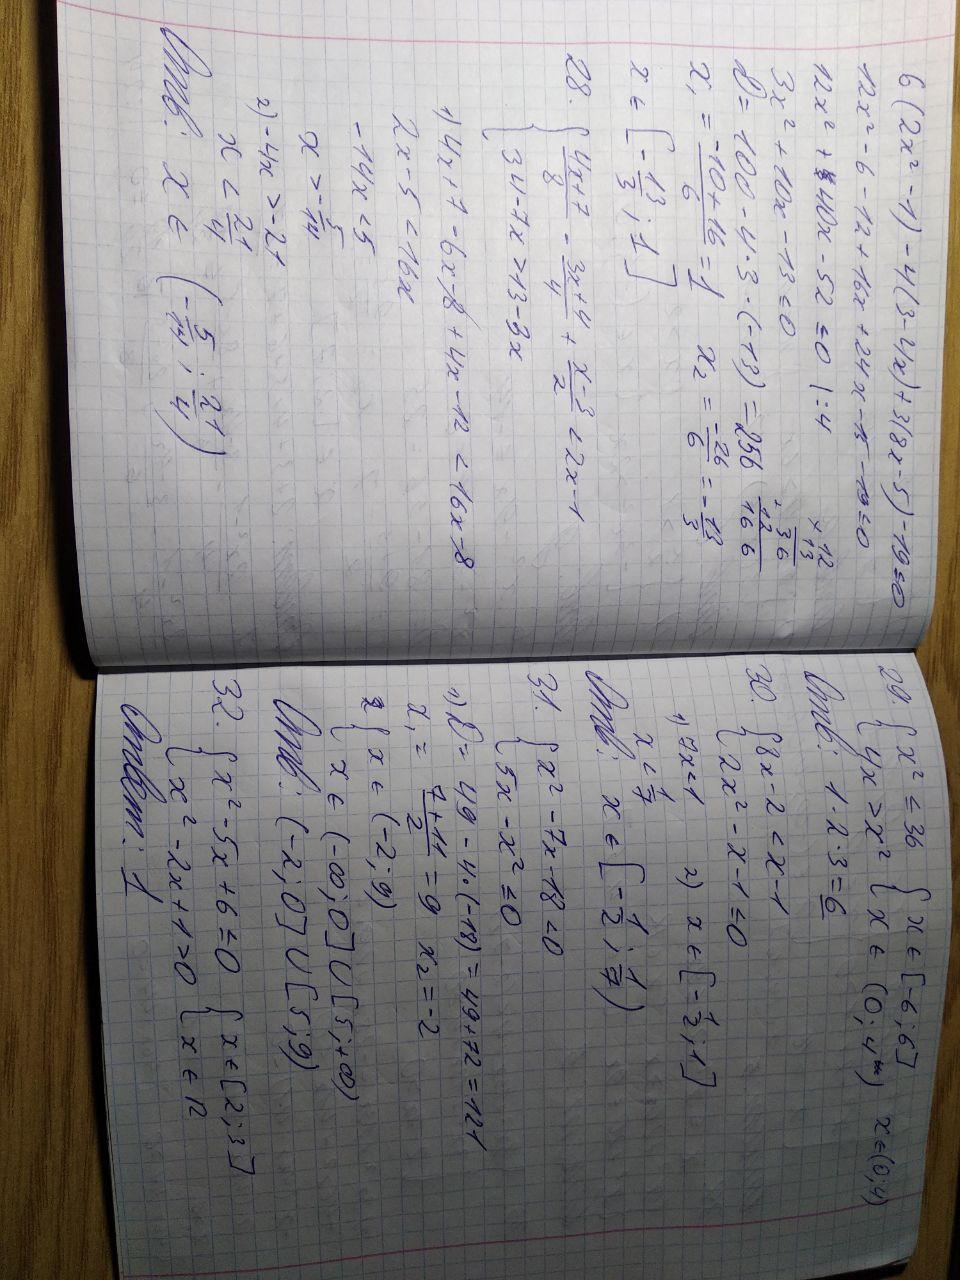 6(2x² - 1) - 4(3 - 4x) + 3(8x - 5) - 19 ≤ 0
12x² - 6 - 12 + 16x + 24x - 15 - 19 ≤ 0
12x² + 40x - 52 ≤ 0 | : 4
3x² + 10x - 13 ≤ 0
D = 100 - 4 · 3 · (-13) = 256
x₁ = (-10 + 16)/6 = 1 x₂ = -26/6 = -13/3
x ∈ [-13/3; 1]
28. { (4x+7)/8 - (3x+4)/4 + (x-3)/2 < 2x - 1
{ 34 - 7x > 13 - 3x
1) 4x + 7 - 6x - 8 + 4x - 12 < 16x - 8
2x - 5 < 16x
-14x < 5
x > -5/14
2) -4x > -21
x < 21/4
Отв: x ∈ (-5/14; 21/4)
29. { x² ≤ 36 { x ∈ [-6; 6]
{ 4x > x² { x ∈ (0; 4) x ∈ (0; 4)
Отв: 1 · 2 · 3 = 6
30. { 8x - 2 < x - 1
{ 2x² - x - 1 ≤ 0
1) 7x < 1 2) x ∈ [-1/2; 1]
x < 1/7
Отв: x ∈ [-1/2; 1/7)
31. { x² - 7x - 18 < 0
{ 5x - x² ≤ 0
1) D = 49 - 4 · (-18) = 49 + 72 = 121
x₁ = (7 + 11)/2 = 9 x₂ = -2
{ x ∈ (-2; 9)
{ x ∈ (-∞; 0] ∪ [5; +∞)
Отв: (-2; 0] ∪ [5; 9)
32. { x² - 5x + 6 ≤ 0 { x ∈ [2; 3]
{ x² - 2x + 1 > 0 { x ∈
Ответ: 1